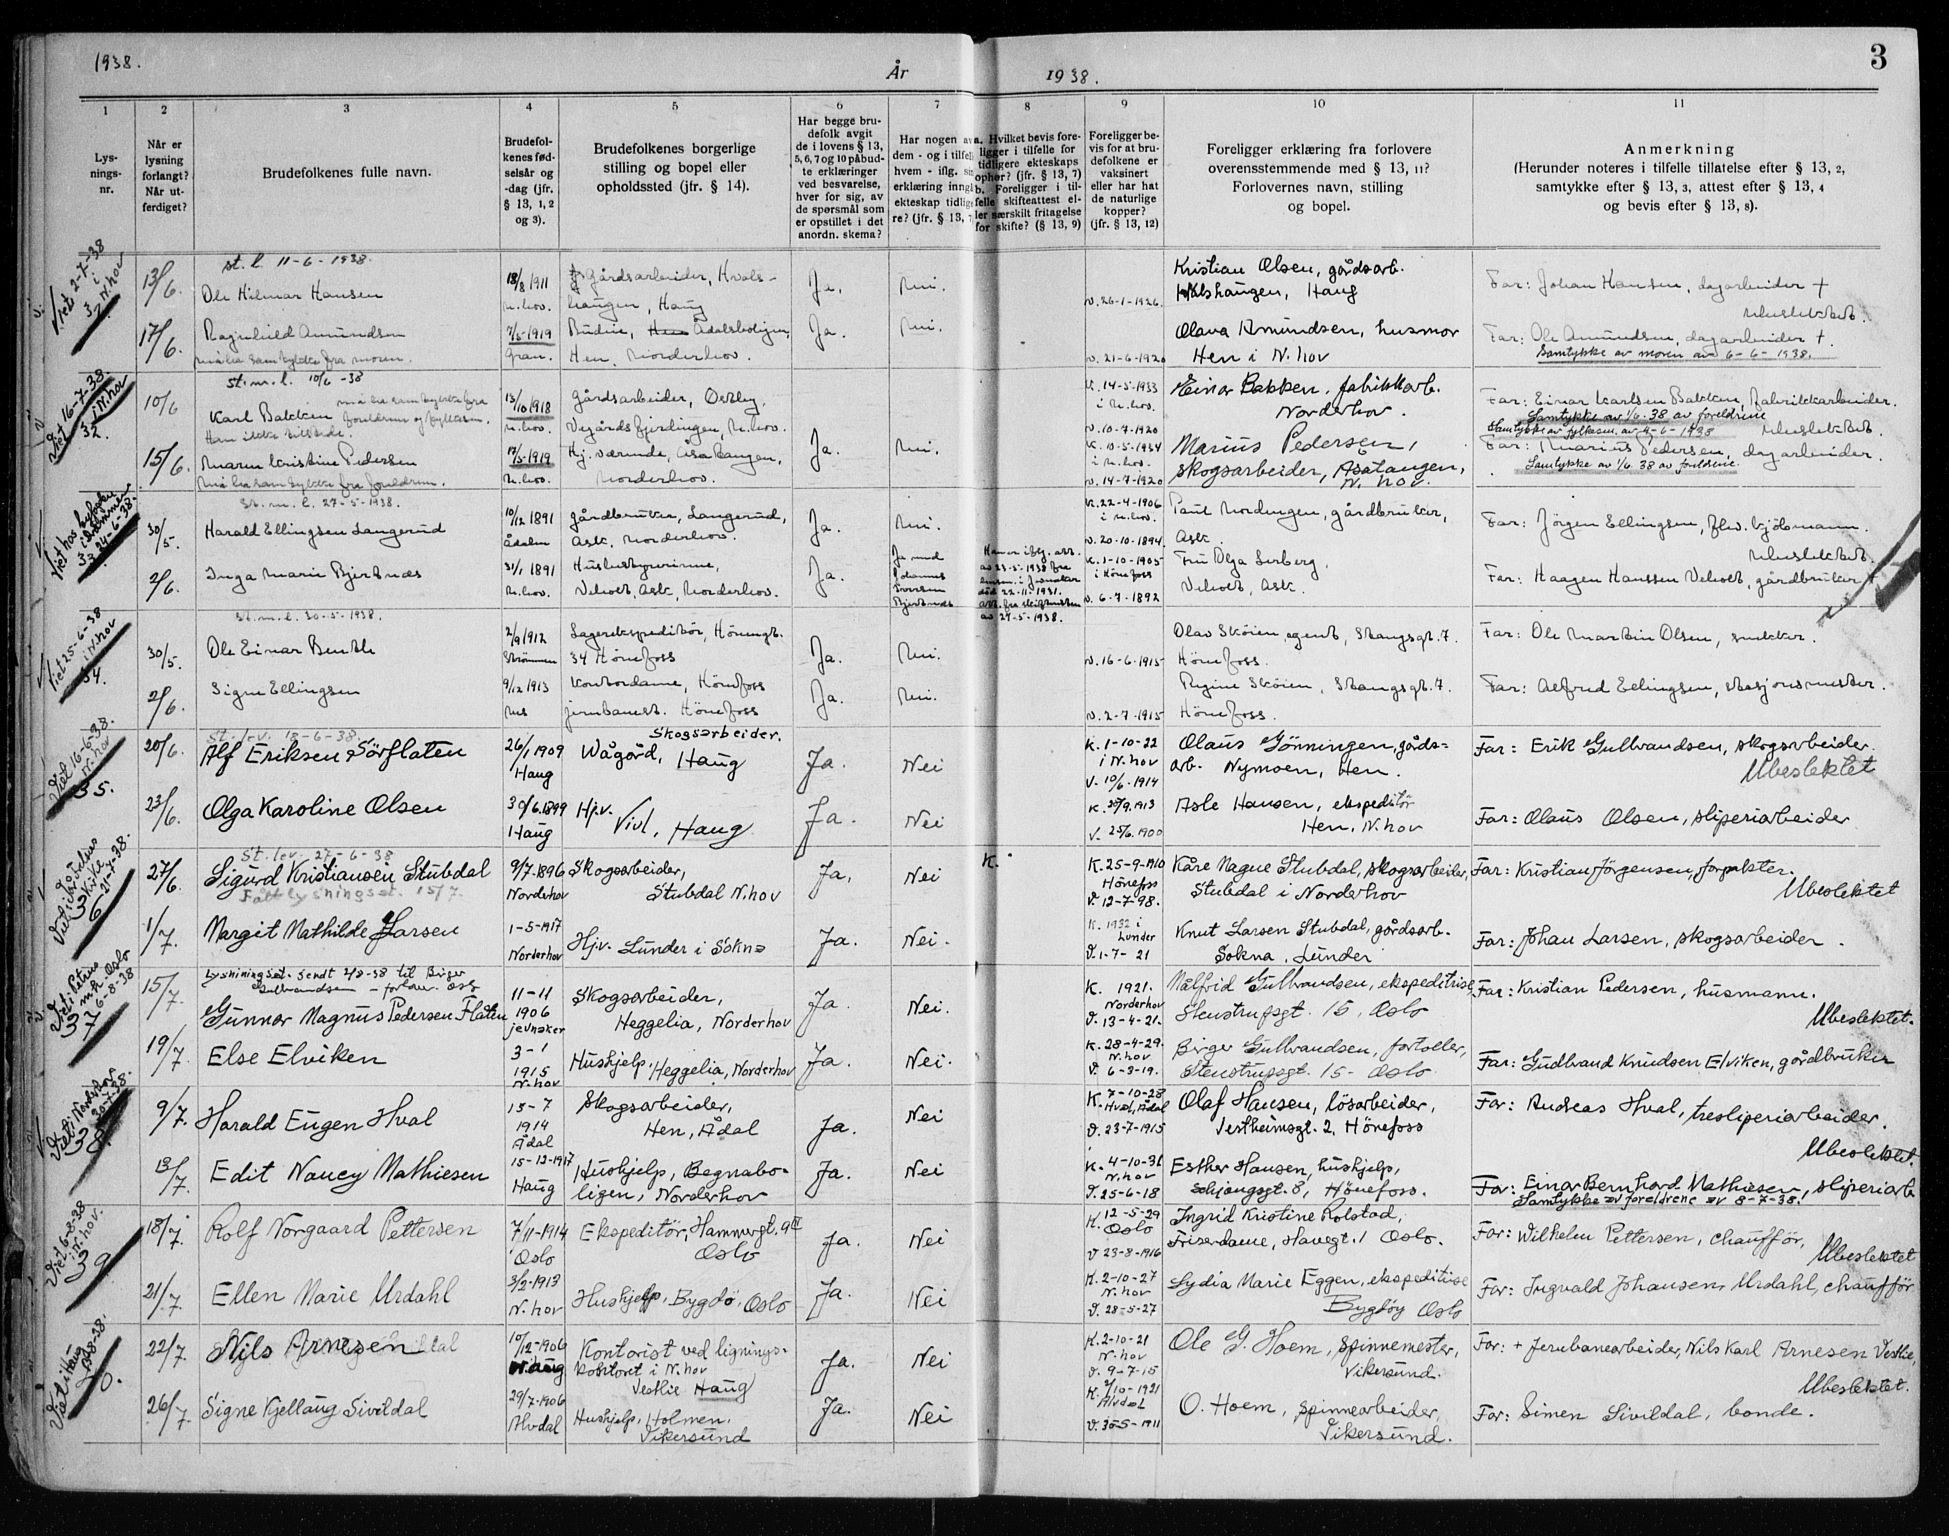 1938.
År
1938.
3
1
2
3
4
5
6
7
8
9
10
11
Lys-
nings-
nr.
Når er
lysning
forlangt?
Når ut-
ferdiget?
Brudefolkenes fulle navn.
Brudefol-
kenes fød-
selsår og
-dag (jfr.
§ 13, 1, 2
og 3).
Brudefolkenes borgerlige
stilling og bopel eller
opholdssted (jfr. § 14).
Har begge bru-
defolk avgit
de i lovens § 13,
5, 6, 7 og 10 påbud-
te erklæringer
ved besvarelse,
hver for sig, av
de spørsmål som
er opstillet i det
anordn. skema?
Har nogen av
dem - og i tilfelle
hvem - iflg. sin
erklæring inngått
ekteskap tidlige-
re? (jfr. § 13, 7
a. Hvilket bevis fore-
ligger i tilfelle for
tidligere ekteskaps
ophør? (jfr. § 13, 7)
b. Foreligger i til-
felle skifteattest el-
ler særskilt fritagelse
for skifte? (§ 13, 9)
Foreligger be-
vis for at bru-
defolkene er
vaksinert
eller har hat
de naturlige
kopper?
(jfr. § 13, 12)
Foreligger erklæring fra forlovere
overensstemmende med § 13, 11?
Forlovernes navn, stilling
og bopel.
Anmerkning
(Herunder noteres i tilfelle tillatelse efter § 13, 2,
samtykke efter § 13, 3, attest efter § 13, 4
og bevis efter § 13, 8).
Viet 2-7-38
i
N.hov
31.
st. l. 11-6-1938.
13/6. Ole Hilmar Hansen
18/8 1911
N.hov.
Gårdsarbeider, Hvals-
haugen, Haug
Ja. Nei.
v. 26-1-1926.
Kristian Olsen, gårdsarb.
Hvalshaugen, Haug
Far: Johan Hansen, dagarbeider +
Ubeslektet.
17/6. Ragnhild Amundsen
må ha samtykke fra moren.
7/5-1919
Gran.
Budeie, Ådalsboligen,
Hen, Norderhov.
Ja. Nei.
v. 21-6-1920
Olava Amundsen, husmor
Hen i N.hov
Far: Ole Amundsen, dagarbeider +.
Samtykke av moren av 6-6-1938.
Viet 16-7-38
i N.hov
32.
st. m. l. 10/6-38
10/6 Karl Bakken
må ha samtykke fra
foreldrene og fylkesm.
Ham ikke tilstede.
13/10 1918
N.hov.
Gårdsarbeider, Østby,
Vegårdsfjerdingen, N.hov.
K. 14-5-1933
i N.hov.
v. 10-7-1920
Einar Bakken, fabrikkarb.
Norderhov.
Far: Einar Karlsen Bakken, Fabrikkarbeider.
Samtykke av 1/6.38 av foreldrene
Samtykke av fylkesm. av 4-6-1938
Ubeslektet.
15/6. Maren Kristine Pedersen
må ha samtykke fra foreldrene.
17/5-1919
N.hov.
Hj. værende, Åsatangen,
Norderhov.
Ja. Nei.
K. 10-5-1934
i N.hov.
v. 14-7-1920
Marius Pedersen,
skogsarbeider, Åsatangen,
N. hov.
Far: Marius Pedersen, dagarbeider.
Samtykke av 1/6 38 av foreldrene.
Viet hos byfogden
i Drammen
24-6-38.
33
st. m. l. 27-5-1938.
30/5. Harald Ellingsen Langerud
10/12 1891
Ådalen
Gårdbruker, Langerud,
Ask, Norderhov.
Ja. Nei.
K. 22-4-1906
i N.hov.
v. 20-10-1894.
Paul Nordengen, gårdbruker,
Ask.
Far: Jörgen Ellingsen, flv. kjöbmann.
Ubeslektet.
2/6. Inga Marie Bjertnes
31/1 1891
N.hov.
Husbestyrerinne,
Velvet, Ask, Norderhov.
Ja.
Ja med
Johannes
Iversen
Bjertnes
Han er iflg. att.
av 23-5-1938 fra
lensm. i Jevnaker
död 22-11-1931.
att. fra skifteretten
av 24-5-1938.
K. 1-10-1905
i Hönefoss
v. 6-7-1892
Fru Olga Serberg,
Velvet, Ask.
Far: Haagen Hanssen Velvet, gårdbruker +
Viet 25-6-38
i N.hov
34.
st. m. l. 30-5-1938.
30/5. Ole Einar Benthe
2/9 1912
Strömmen
Lagerekspeditör, Höneng.
34 Hönefoss
Ja. Nei.
v. 16-6-1915
Olav Sköien, agent, Stangsgt. 7.
Hönefoss.
Far: Ole Martin Olsen, snekker.
2/6. Signe Ellingsen
9/12 1913
Nes
Kontordame, Hönefoss
jernbanest. Hönefoss
Ja. Nei.
v. 2-7-1915
Regine Sköien, Stangsgt. 7.
Hönefoss.
Far: Alfred Ellingsen, stasjonsmester.
Viet 16-6-38.
N.hov
35.
St. lev. 18-6-38.
20/6. Alf Eriksen Sörflaten
26/1 1909
Haug
Skogsarbeider.
Wågård, Haug
Ja. Nei
K. 1-10-22
i N.hov
V. 10/6-1914
Olaus Gönningen, gårds=
arb. Nymoen, Hen.
Far: Erik Gulbrandsen, skogsarbeider.
Ubeslektet
23/6. Olga Karoline Olsen
30/6.1899
Haug
Hjv.
Vivl, Haug
Ja. Nei
K. 28/9.1913
V. 25/6.1900
Asle Hansen, ekspeditör
Hen, N.hov
Far: Olaus Olsen, sliperiarbeider
Viet i Jårfelsær
Kirke
21-7-38.
36
St. lev. 27-6-38
27/6. Sigurd Kristiansen Stubdal
Fått lysningsat. 15/7.
9/7-1896
Norderhov
Skogsarbeider,
Stubdal N.hov
Ja. Nei
K.
K. 25-9-1910
Hönefoss
V. 12-7-98.
Kåre Magne Stubdal, skogsarbeider,
Stubdal i Norderhov
Far: Kristian Jörgensen, forpakter.
Ubeslektet
1/7. Margit Mathilde Larsen
1-5-1917
Norderhov
Hjv. Lunder i Sokna
Ja. Nei.
K. 1932 i
Lunder
V. 1-7-21
Knut Larsen Stubdal, gårdsarb.
Sokna, Lunder
Far: Johan Larsen, skogsarbeider.
Viet i Petrus
m.k. Oslo
6-8-38
37
Lysningsat. sendt 2/8-38 til Birger
Gulbrandsen - forlover. Oslo
15/7. Gunnar Magnus Pedersen Flaten
11-11
1906
Jevnaker
Skogsarbeider,
Heggelia, Norderhov
Ja Nei.
K. 1921.
Norderhov
V. 13-4-21.
Målfrid Gulbrandsen, ekspeditrise,
Stenstrupsgt. 15, Oslo
Far: Kristian Pedersen, husmann.
Ubeslektet.
19/7. Else Elviken
3-1
1915
N.hov
Hushjelp, Heggelia, Norderhov
Ja. Nei.
K. 28-4-29.
N.hov
V. 6-3-19.
Birger Gulbrandsen, fortoller,
Stenstrupsgt. 15- Oslo
Far: Gudbrand Knudsen Elviken, gårdbruker
Viet i Norderhov
30-7-38.
38.
9/7. Harald Eugen Hval
13-7
1914
Ådal
Skogsarbeider,
Hen, Ådal
Ja. Nei
K. 7-10-28
Hval, Ådal
V. 23-7-1915
Olaf Hansen, lösarbeider,
Vestheimsgt. 2, Hönefoss
Far: Andreas Hval, tresliperiarbeider.
Ubeslektet.
13/7. Edit Nancy Mathiesen
15-12-1917
Haug
Hushjelp, Begnabo-
ligen, Norderhov
Ja. Nei
K. 4-10-31
N.hov
V. 25-6-18
Esther Hansen, hushjelp,
Schjongsgt. 8, Hönefoss.
Far: Einar Bernhard Mathiesen, sliperiarb.
Samtykke av foreldrene av 8-7-38!
Viet 6-8-38
i N.hov.
39
18/7. Rolf Norgaard Pettersen
7/11-1914
Oslo
Ekspeditör, Hammergt. 9 II
Oslo
Ja. Nei
K. 12-5-29
Oslo
V 23-8-1916
Ingrid Kristine Rolstad,
Friserdame, Havegt. 1 Oslo.
Far: Wilhelm Pettersen, chaufför,
Ubeslektet
21/7. Ellen Marie Urdahl
3/2-1913
N.hov
Hushjelp, Bygdö, Oslo
Ja. Nei
K. 2-10-27
N.hov
V. 28-5-27
Lydia Marie Eggen, ekspeditrise
Bygdöy Oslo
Far: Ingvald Johansen Urdahl, chaufför
Viet i Haug
40.
22/7. Nils Arnesen
10/12-1906
Haug
Kontorist ved lignings-
kontoret i N.hov
Vestlie Haug
Ja. Nei
K. 2-10-21
N.hov
V. 9-7-15
Ole G. Hoem, spinnemester,
Vikersund.
Far: + Jernbanearbeider, Nils Karl Arnesen Vestlie,
Ubeslektet.
26/7. Signe Kjellaug Sivildal
29/7-1906
Alvdal
Hushjelp, Holmen,
Vikersund
Ja. Nei
K. 2/10-1921
Alvdal
V. 30-5-1911
O. Hoem, spinnearbeider,
Vikersund.
Far: Simen Sivildal, bonde.